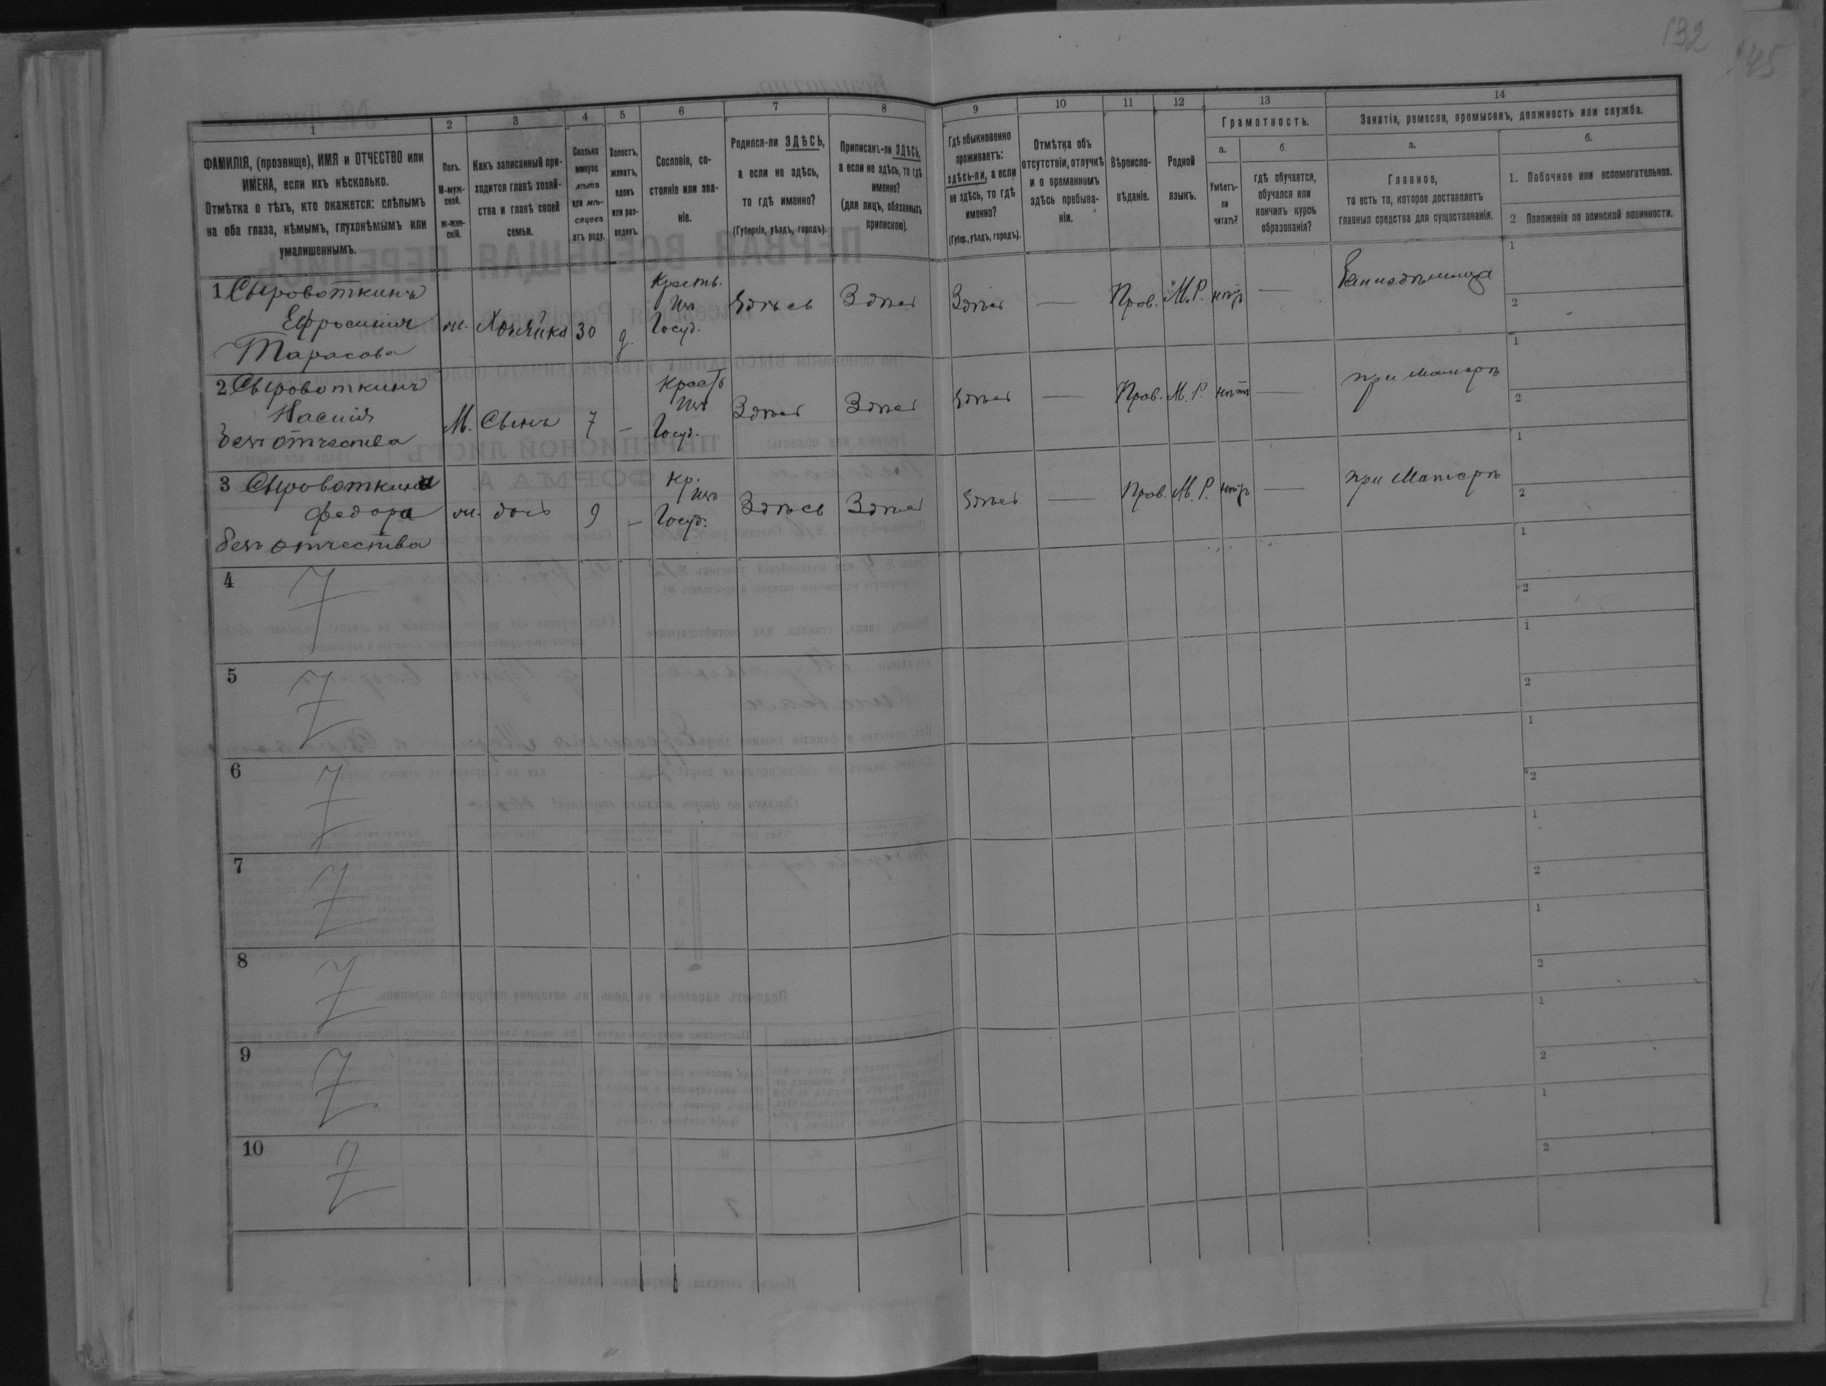 132
145
1 2 3 4 5 6 7 8 9 10 11 12 13 14
ФАМИЛІЯ, (прозвище), ИМЯ и ОТЧЕСТВО или
ИМЕНА, если ихъ нѣсколько.
Отмѣтка о тѣхъ, кто окажется: слѣпымъ
на оба глаза, нѣмымъ, глухонѣмымъ или
умалишеннымъ.
Полъ.
М-муж-
ской.
ж-жен-
скій.
Какъ записанный при-
ходится главѣ хозяй-
ства и главѣ своей
семьи.
Сколько
минуло
лѣтъ
или мѣ-
сяцевъ
отъ роду.
Холостъ,
женатъ,
вдовъ
или раз-
веденъ.
Сословіе, со-
стояніе или зва-
ніе.
Родился-ли ЗДѢСЬ,
а если не здѣсь,
то гдѣ именно?
(Губернія, уѣздъ, городъ).
Приписанъ-ли ЗДѢСЬ,
а если не здѣсь, то гдѣ
именно?
(для лицъ, обязанныхъ
припискою).
Гдѣ обыкновенно
проживаетъ:
здѣсь-ли, а если
не здѣсь, то гдѣ
именно?
(Губер., уѣздъ, городъ).
Отмѣтка объ
отсутствіи, отлучкѣ
и о временномъ
здѣсь пребыва-
ніи.
Вѣроиспо-
вѣданіе.
Родной
языкъ.
Грамотность.
а.
Умѣетъ-
ли
читать?
б.
гдѣ обучается,
обучался или
кончилъ курсъ
образованія?
Занятія, ремесла, промыселъ, должность или служба.
а.
Главное,
то есть то, которое доставляетъ
главныя средства для существованія.
б.
1. Побочное или вспомогательное.
2 Положеніе по воинской повинности.
1 Сыровоткинъ
Ефросинія
Тарасова
ж. Хозяйка 30 д.
Крестъ.
изъ
Госуд.
Здѣсь Здѣсь Здѣсь — Прав. М.Р. нѣтъ —
1
2
2 Сыровоткинъ
Касиія
безъ отчества
М. Сынъ 7 —
Крестъ
изъ
Госуд.
Здѣсь Здѣсь Здѣсь — Прав. М.Р. нѣтъ — при Матерѣ
1
2
3 Сыровоткина
Федора
безъ отчества
ж. дочь 9 —
Кр.
изъ
Госуд.
Здѣсь Здѣсь Здѣсь — Прав. М.Р. нѣтъ — при Матерѣ
1
2
4
1
2
5
1
2
6
1
2
7
1
2
8
1
2
9
1
2
10
1
2